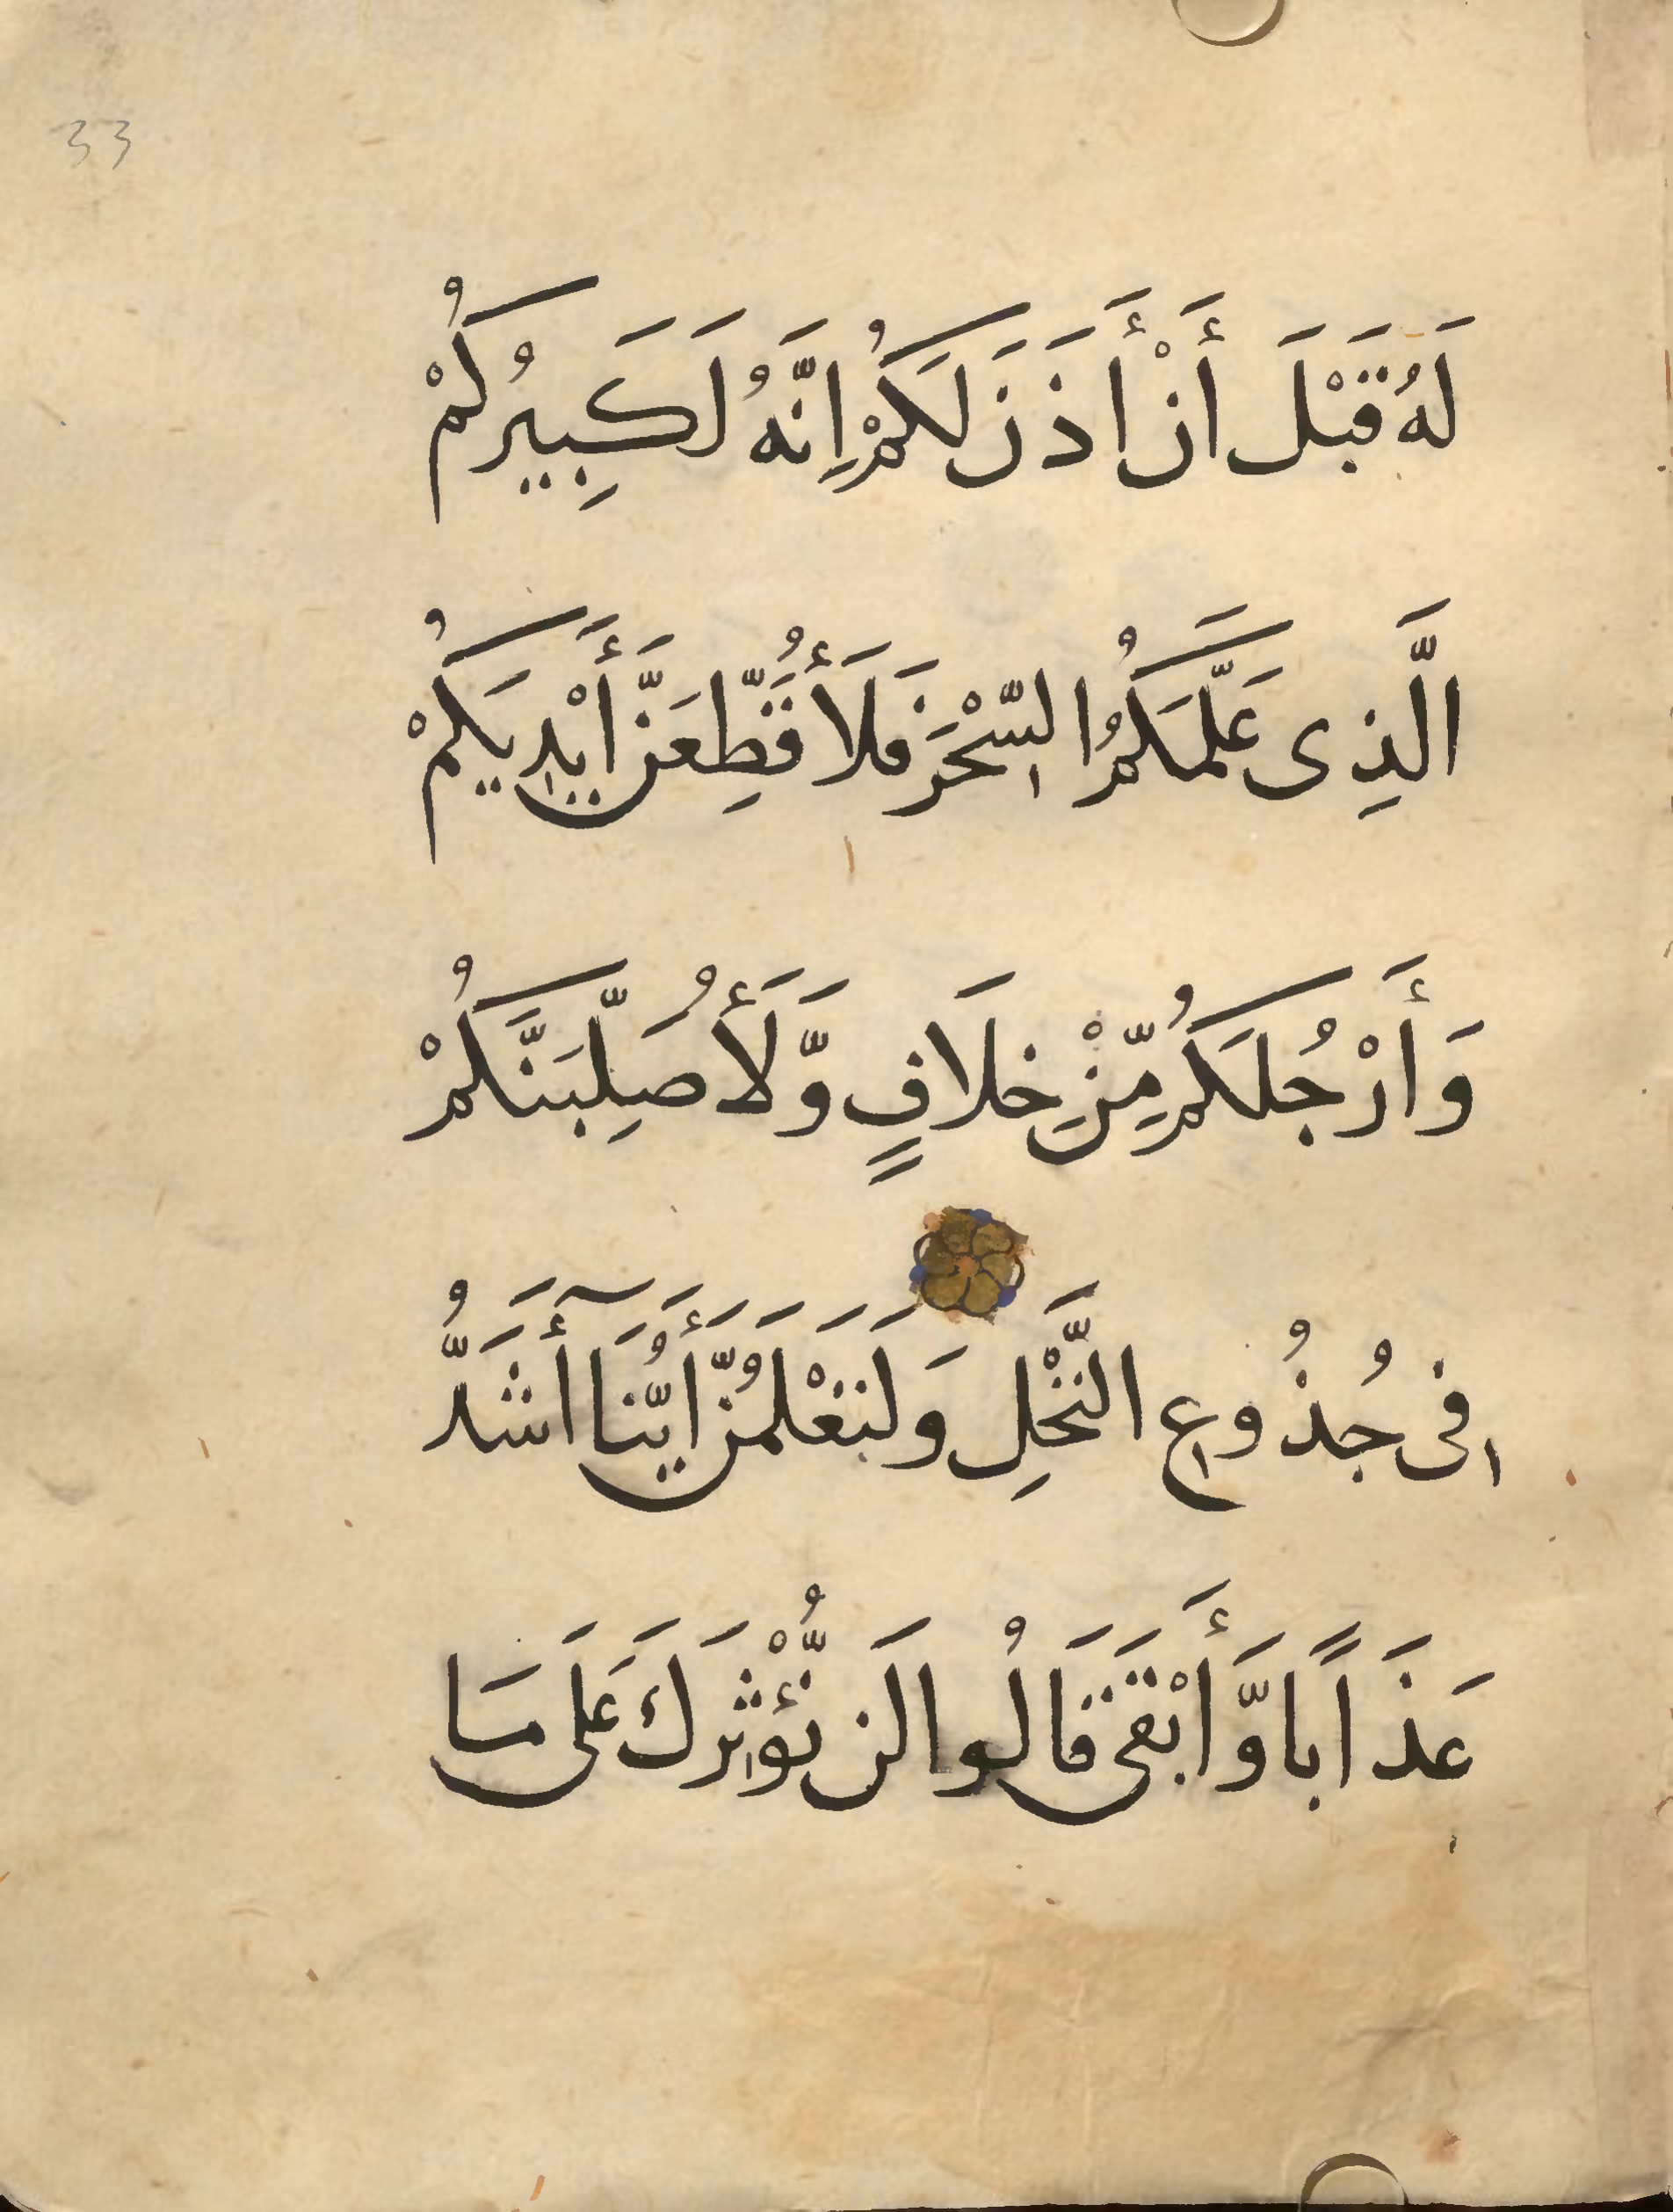 33
لَهُ قَبْلَ أَنْ أَذَنَ لَكُمْ اِنَّهُ لَكَبِيرُكُمْ
الَّذِى عَلَّمَكُمُ السِّحْرَ فَلَأُقَطِّعَنَّ أَيْدِيَكُمْ
وَأَرْجُلَكُم مِّنْ خِلَافٍ وَّلَأُصَلِّبَنَّكُمْ
فِى جُذُوعِ النَّخْلِ وَلَتَعْلَمُنَّ أَيُّنَا أَشَدُّ
عَذَابًا وَّأَبْقَى قَالُوا لَن نُّؤْثِرَكَ عَلَى مَا